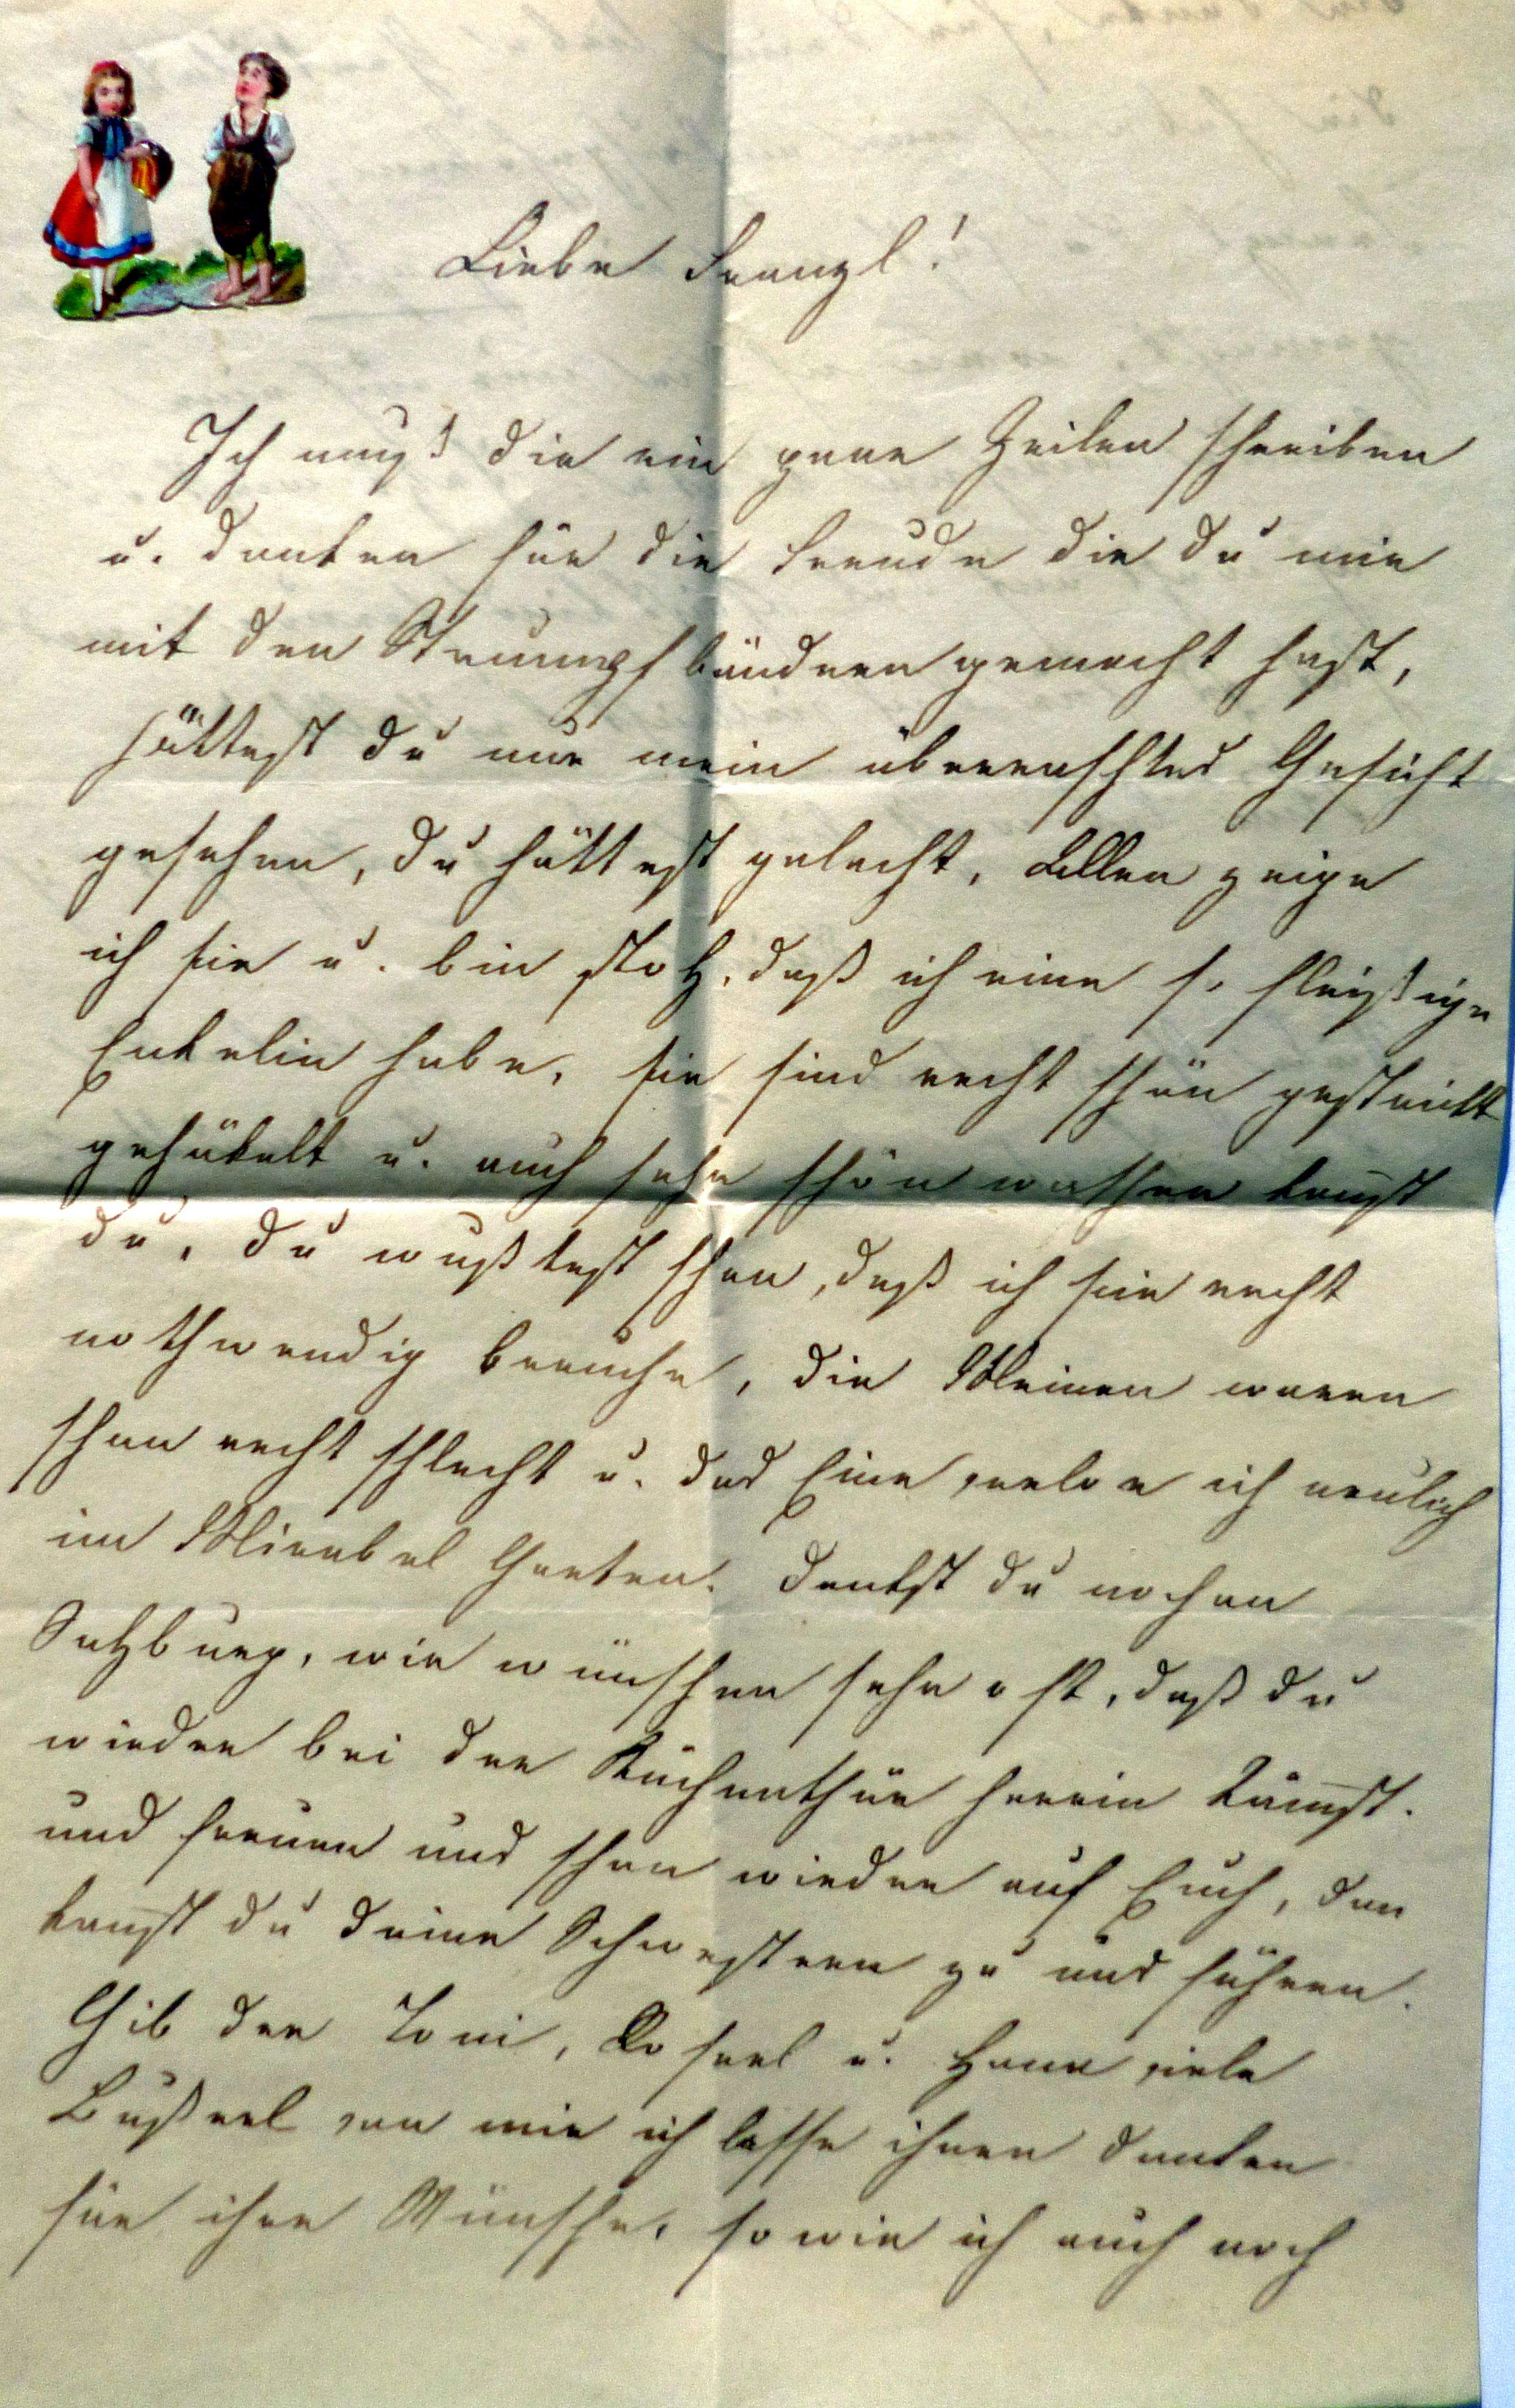 Liebe Franzl!
Ich muß dir ein paar Zeilen schreiben
u. danken für die Freude die du mir
mit den Strumpfbändern gemacht hast,
hättest du nur mein überraschtes Gesicht
gesehen, du hättest gelacht, Allen zeige
ich sie u. bin stolz, daß ich eine so fleißige
Enkelin habe, sie sind recht schön gestrickt
gehäkelt u. auch sehr schön kanst
du, du wußtest schon, daß ich sie recht
nothwendig brauche, die Meinen waren
schon recht schlecht u. das Eine verlor ich neulich
im Mirabel Garten. Denkst du noch an
Salzburg, wir wünschen sehr oft, daß du
wieder bei der Küchenthür herein kämst.
uns freuen uns schon wieder auf Euch, dan
kanst du deine Schwestern zu uns führen.
Gib der Toni, u. viele
Bußerl von mir ich lasse ihnen danken
für ihre Wünsche, so wie ich auch noch